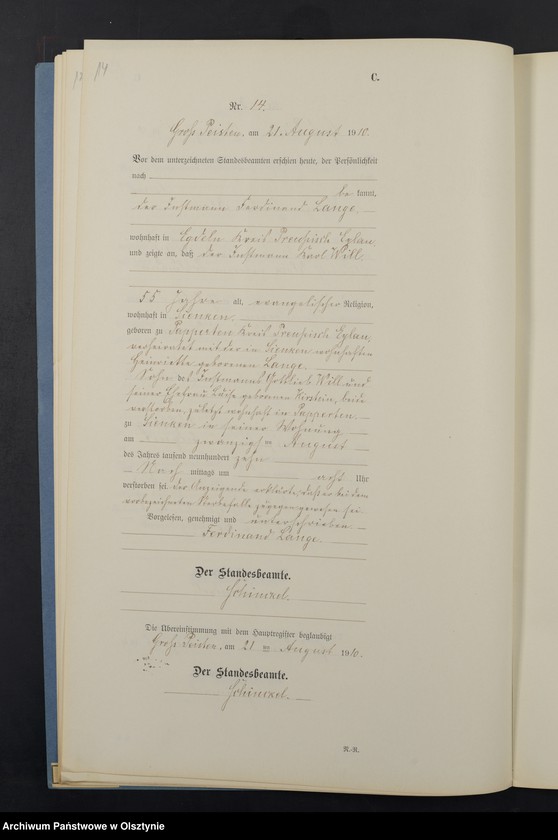 14
C.
Nr. 14.
Groß Peisten, am 21. August 1910.
Vor dem unterzeichneten Standesbeamten erschien heute, der Persönlichkeit
nach
be kannt,
der Instmann Ferdinand Lange
wohnhaft in Kreis Preußisch Eylau,
und zeigte an, daß der Instmann Karl Will
55 Jahre alt, evangelischer Religion,
wohnhaft in Lienken,
geboren zu Papperten Kreis Preußisch Eylau,
verheiratet mit der in Lienken wohnhaften
Henriette geborenen Lange
Sohn des Instmanns Gottlieb Will und
seiner Ehefrau Luise geborenen Kirstein, beide
verstorben, zuletzt wohnhaft in Papperten
zu Lienken in seiner Wohnung
am zwanzigsten August
des Jahres tausend neunhundert zehn
Nach mittags um acht Uhr
verstorben sei. Der Anzeigende erklärte, daß er bei dem
vorbezeichneten Sterbefalle zugegen gewesen sei.
Vorgelesen, genehmigt und unterschrieben
Ferdinand Lange.
Der Standesbeamte.
Schinckel.
Die Übereinstimmung mit dem Hauptregister beglaubigt
Groß Peisten, am 21 ten August 1910.
Der Standesbeamte.
Schinckel.
N.-R.
Archiwum Państwowe w Olsztynie